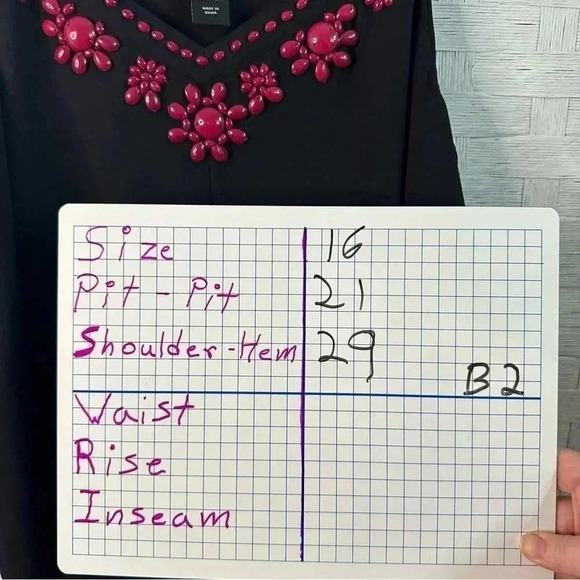 MADE IN
CHINA
Size 16
Pit - Pit 21
Shoulder-Hem 29
B2
Waist
Rise
Inseam